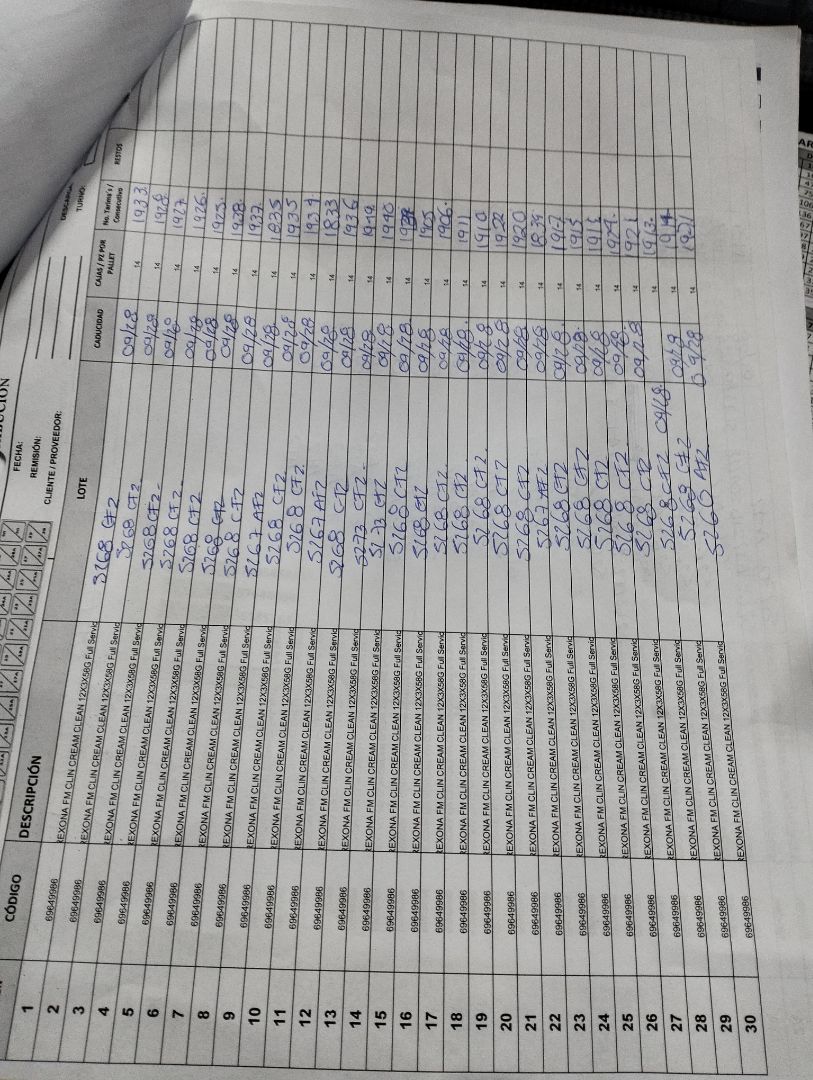 FECHA:
REMISIÓN:
CLIENTE / PROVEEDOR:
DESCARGA
TURNO:
CÓDIGO DESCRIPCIÓN LOTE CADUCIDAD CAJAS / PZ POR PALLET No. Tarima's / Consecutivo RESTOS
1 69649986 REXONA FM CLIN CREAM CLEAN 12X3X58G Full Servic S268 CF2 09/28 14 1933
2 69649986 REXONA FM CLIN CREAM CLEAN 12X3X58G Full Servic S268 CF2 09/28 14 1928
3 69649986 REXONA FM CLIN CREAM CLEAN 12X3X58G Full Servic S268 CF2- 09/28 14 1927
4 69649986 REXONA FM CLIN CREAM CLEAN 12X3X58G Full Servic S268 CF2 09/28 14 1926
5 69649986 REXONA FM CLIN CREAM CLEAN 12X3X58G Full Servic S268 CF2 09/28 14 1925
6 69649986 REXONA FM CLIN CREAM CLEAN 12X3X58G Full Servic S268 CF2 09/28 14 1938
7 69649986 REXONA FM CLIN CREAM CLEAN 12X3X58G Full Servic S268 CF2 09/28 14 1937
8 69649986 REXONA FM CLIN CREAM CLEAN 12X3X58G Full Servic S267 AF2 09/28 14 835
9 69649986 REXONA FM CLIN CREAM CLEAN 12X3X58G Full Servic S268 CF2 09/28 14 1935
10 69649986 REXONA FM CLIN CREAM CLEAN 12X3X58G Full Servic S268 CF2 09/28 14 1934
11 69649986 REXONA FM CLIN CREAM CLEAN 12X3X58G Full Servic S267 AF2 09/28 14 1833
12 69649986 REXONA FM CLIN CREAM CLEAN 12X3X58G Full Servic S268 CF2 09/28 14 1936
13 69649986 REXONA FM CLIN CREAM CLEAN 12X3X58G Full Servic S273 CF2 09/28 14 1919
14 69649986 REXONA FM CLIN CREAM CLEAN 12X3X58G Full Servic S273 CF2 09/28 14 1940
15 69649986 REXONA FM CLIN CREAM CLEAN 12X3X58G Full Servic S268 CF2 09/28 14
16 69649986 REXONA FM CLIN CREAM CLEAN 12X3X58G Full Servic S268 CF2 09/28 14 1905
17 69649986 REXONA FM CLIN CREAM CLEAN 12X3X58G Full Servic S268 CF2 09/28 14 1906
18 69649986 REXONA FM CLIN CREAM CLEAN 12X3X58G Full Servic S268 CF2 09/28 14 1911
19 69649986 REXONA FM CLIN CREAM CLEAN 12X3X58G Full Servic S268 CF2 09/28 14 1910
20 69649986 REXONA FM CLIN CREAM CLEAN 12X3X58G Full Servic S268 CF2 09/28 14 1922
21 69649986 REXONA FM CLIN CREAM CLEAN 12X3X58G Full Servic S268 CF2 09/28 14 1920
22 69649986 REXONA FM CLIN CREAM CLEAN 12X3X58G Full Servic S267 AF2 09/28 14 1839
23 69649986 REXONA FM CLIN CREAM CLEAN 12X3X58G Full Servic S268 CF2 09/28 14 1917
24 69649986 REXONA FM CLIN CREAM CLEAN 12X3X58G Full Servic S268 CF2 09/28 14 1915
25 69649986 REXONA FM CLIN CREAM CLEAN 12X3X58G Full Servic S268 CF2 09/28 14 1916
26 69649986 REXONA FM CLIN CREAM CLEAN 12X3X58G Full Servic S268 CF2 09/28 14 1924
27 69649986 REXONA FM CLIN CREAM CLEAN 12X3X58G Full Servic S268 CF2 09/28 14 1921
28 69649986 REXONA FM CLIN CREAM CLEAN 12X3X58G Full Servic S268 CF2 09/28 14 1913
29 69649986 REXONA FM CLIN CREAM CLEAN 12X3X58G Full Servic S268 CF2 09/28 14 1914
30 69649986 REXONA FM CLIN CREAM CLEAN 12X3X58G Full Servic S260 AF2 09/28 14